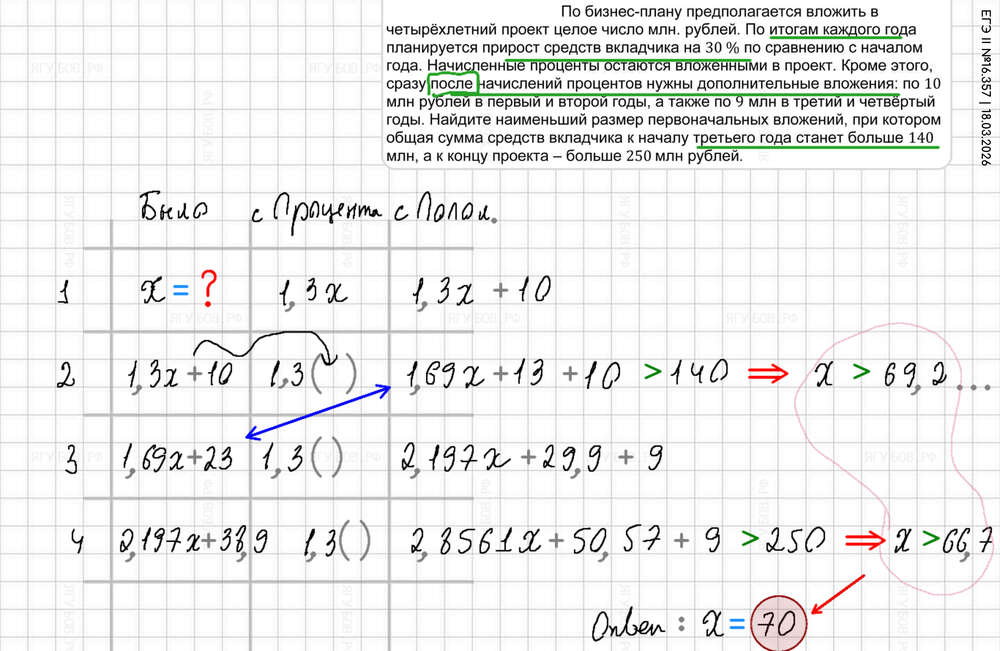 По бизнес-плану предполагается вложить в
четырёхлетний проект целое число млн. рублей. По итогам каждого года
планируется прирост средств вкладчика на 30 % по сравнению с началом
года. Начисленные проценты остаются вложенными в проект. Кроме этого,
сразу после начислений процентов нужны дополнительные вложения: по 10
млн рублей в первый и второй годы, а также по 9 млн в третий и четвёртый
годы. Найдите наименьший размер первоначальных вложений, при котором
общая сумма средств вкладчика к началу третьего года станет больше 140
млн, а к концу проекта – больше 250 млн рублей.
ЕГЭ II №16.357 | 18.03.2026
Было с Процента с Попол.
1 x = ? 1,3x 1,3x + 10
2 1,3x+10 1,3( ) 1,69x+13 +10 >140 ⇒ x > 69,2...
3 1,69x+23 1,3( ) 2,197x +29,9 + 9
4 2,197x+38,9 1,3( ) 2,8561x + 50,57 + 9 >250 ⇒ x >66,7
Ответ : x = 70
ЯГУБОВ.РФ